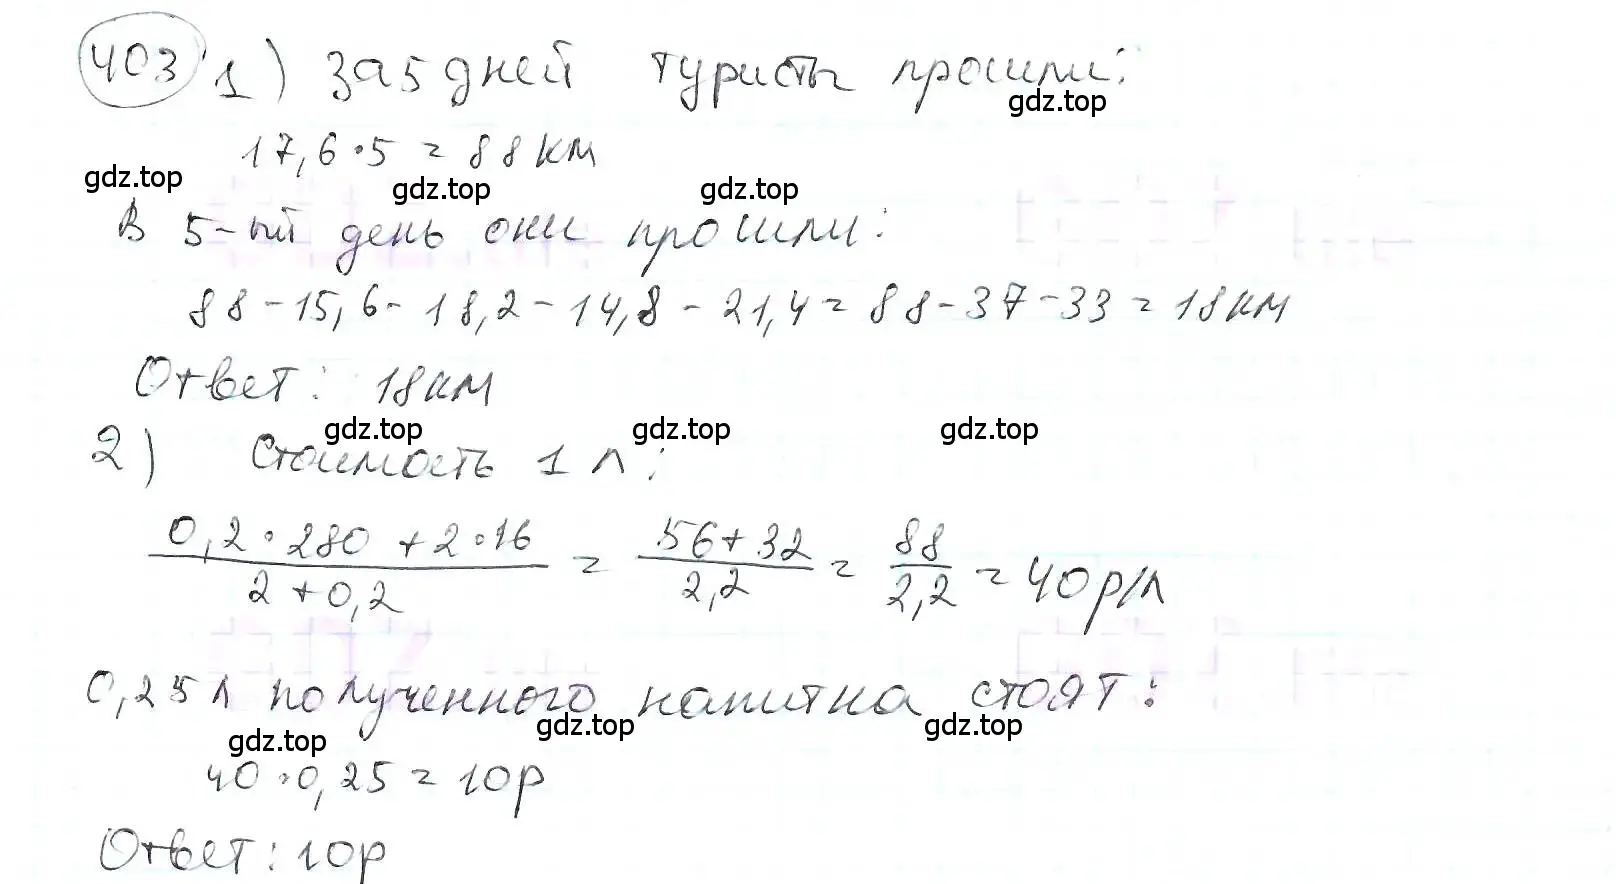 403 1) За 5 дней туристы прошли:
gdz.top
17,6·5 = 88 км
gdz.top gdz.top gdz.top
В 5-ый день они прошли:
88-15,6-18,2-14,8-21,4=88-37-33=18 км
Ответ: 18 км
gdz.top gdz.top gdz.top
2) Стоимость 1 л:
(0,2·280+2·16)/(2+0,2) = (56+32)/2,2 = 88/2,2 = 40 р/л
0,25 л полученного напитка стоят:
gdz.top gdz.top gdz.top
40·0,25=10р
Ответ: 10р